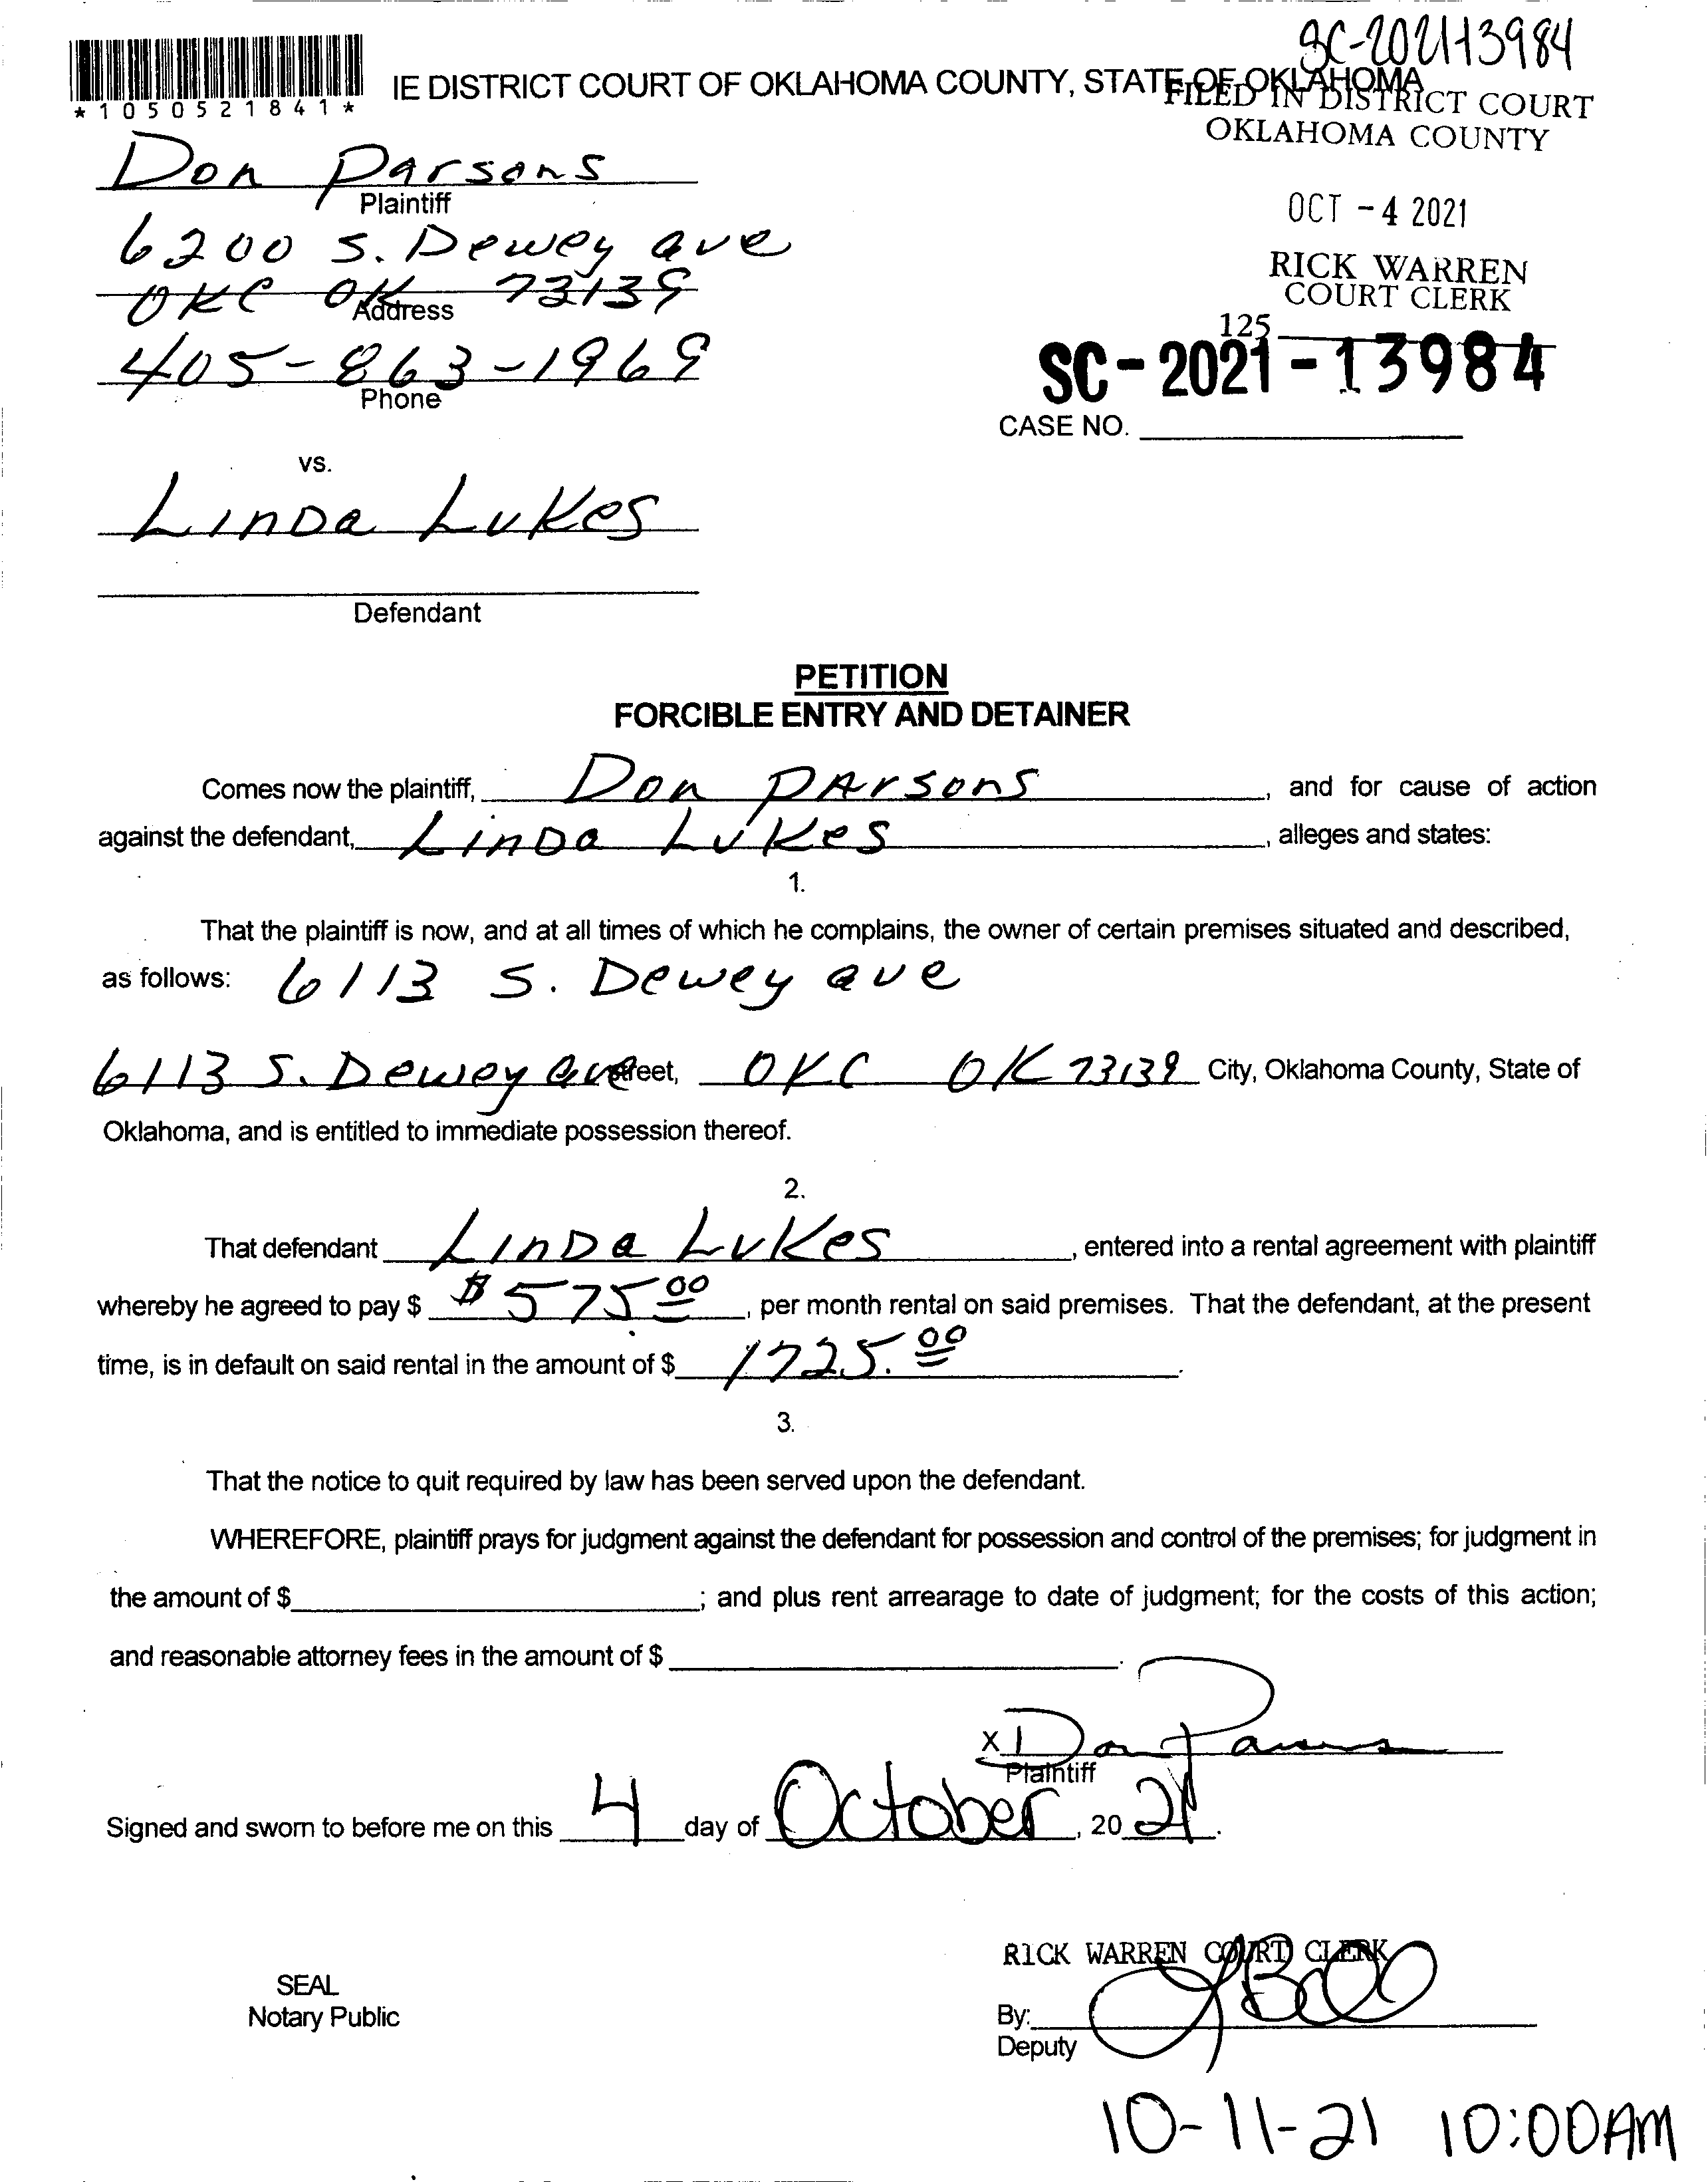 SC-2021-13984
*1050521841*
IE DISTRICT COURT OF OKLAHOMA COUNTY, STATE OF OKLAHOMA
FILED IN DISTRICT COURT
OKLAHOMA COUNTY
Don Parsons
Plaintiff
OCT - 4 2021
6200 S. Dewey ave
RICK WARREN
COURT CLERK
OKC OK 73139
Address
125
405-863-1969
Phone
SC - 2021 - 13984
CASE NO.
vs.
Linda Lukes
Defendant
PETITION
FORCIBLE ENTRY AND DETAINER
Comes now the plaintiff, Don Parsons, and for cause of action
against the defendant, Linda Lukes, alleges and states:
1.
That the plaintiff is now, and at all times of which he complains, the owner of certain premises situated and described,
as follows: 6113 S. Dewey ave
6113 S. Dewey ave Street, OKC OK 73139 City, Oklahoma County, State of
Oklahoma, and is entitled to immediate possession thereof.
2.
That defendant Linda Lukes, entered into a rental agreement with plaintiff
whereby he agreed to pay $ $575.00, per month rental on said premises. That the defendant, at the present
time, is in default on said rental in the amount of $ 1725.00.
3.
That the notice to quit required by law has been served upon the defendant.
WHEREFORE, plaintiff prays for judgment against the defendant for possession and control of the premises; for judgment in
the amount of $; and plus rent arrearage to date of judgment; for the costs of this action;
and reasonable attorney fees in the amount of $.
X Don Parsons
Plaintiff
Signed and sworn to before me on this 4 day of October, 20 21.
RICK WARREN COURT CLERK
SEAL
Notary Public
By:
Deputy
10-11-21 10:00AM